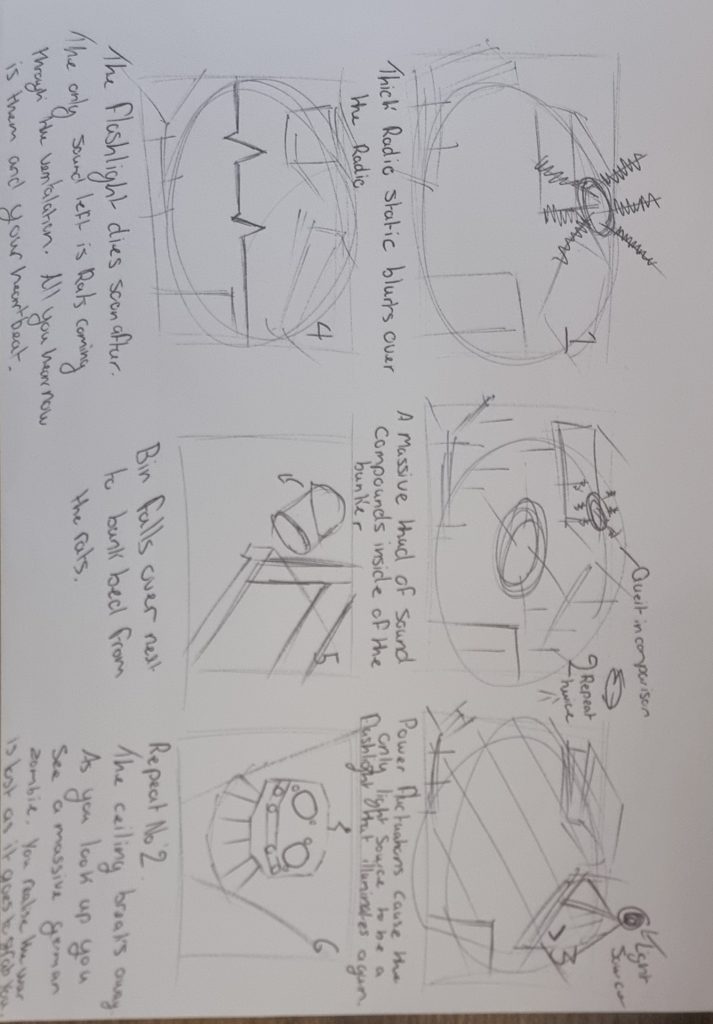 1
Thick Radio static blurts over
the Radio
Queit in comparison
2 Repeat
twice
A massive thud of sound
compounds inside of the
bunker
Light
Source
3
Power fluctuations cause the
only light source to be a
flashlight that illuminates again
4
The flashlight dies soon after.
The only sound left is Rats coming
through the ventalation. All you hear now
is them and your heartbeat.
5
Bin falls over next
to bunk bed from
the rats.
6
Repeat No 2
The ceiling breaks away
As you look up you
see a massive german
zombie. You realise the war
is lost as it goes to grab you.